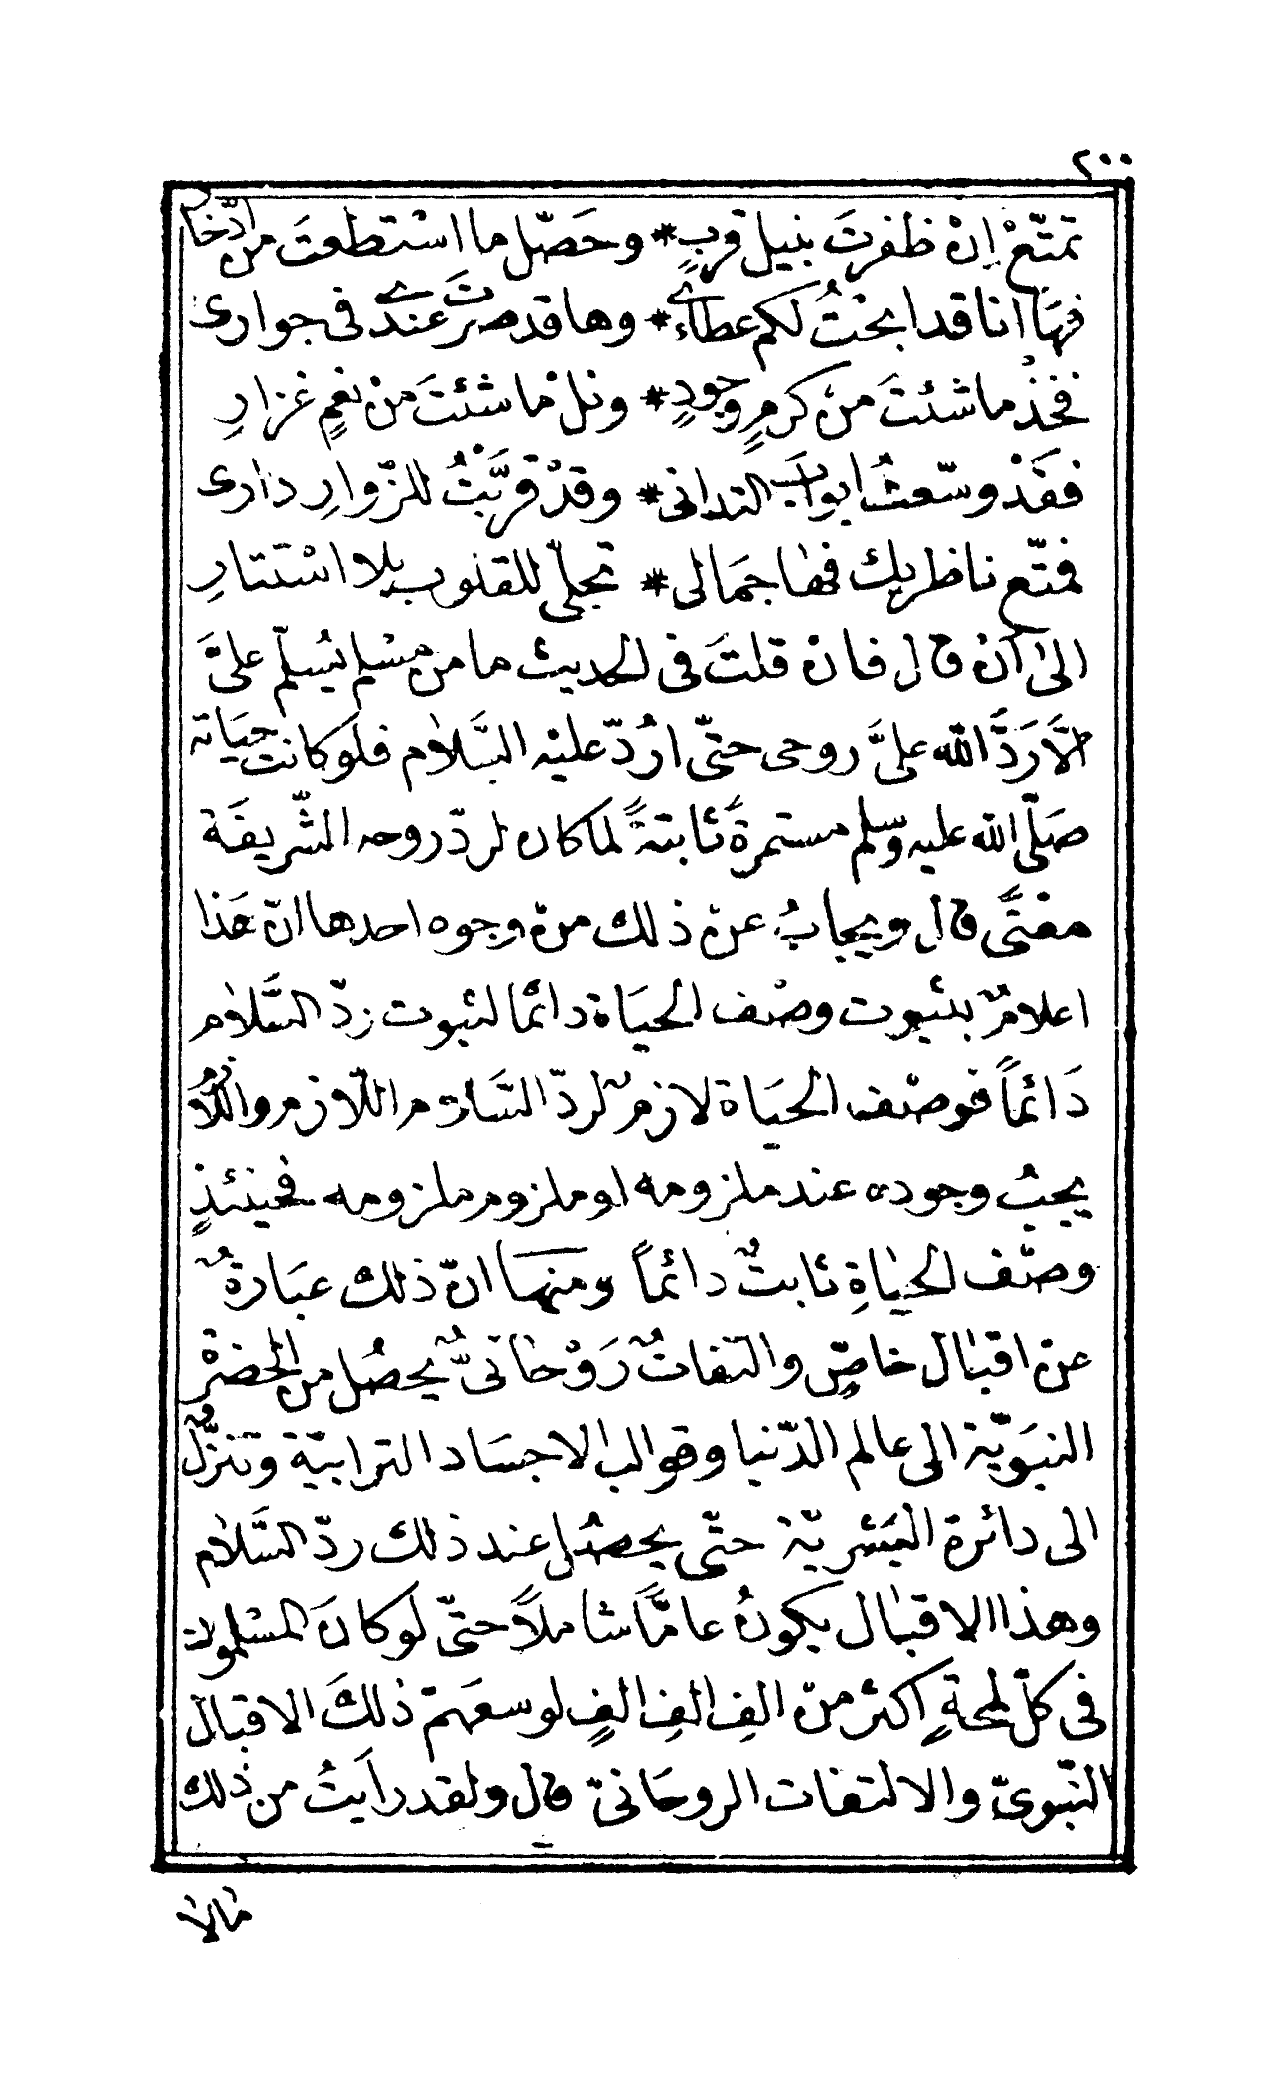 ٢٠٠
تمتّعْ إنْ ظفرتَ بنيل قربٍ * وحَصّل ما استطعتَ من ادّخار
فهَا انا قد ابحْتُ لكم عطائے * وها قد صرْتَ عندے فى جوارى
فخذْ ما شئتَ منْ كرمٍ وجودٍ * ونلْ ما شئتَ منْ نعمٍ غزارِ
فقَدْ وسّعتُ ابوابَ التدانى * وقدْ قرَّبْتُ للزّوارِ دارى
فمتّع ناظريك فها جمَالى * تجلّى للقلوب بلا اسْتتارِ
الىٰ أنْ قال فانْ قلتَ فى الحديث ما من مسْلم يُسلّم علىَّ
الَّا رَدَّ الله علىَّ روحى حتّى ارُدّ عليْه السَّلاٰم فلَوكانت حيَاته
صَلّى الله عليه وسلم مستمرةً ثابتةً لما كان لردّ روحه الشّريفَة
معْنًى قال ويجابُ عنْ ذلك منْ وجوه احدها انّ هَذا
اعلامٌ بثبوت وصْف الحيَاة دائمًا لثبوت ردّ السَّلاٰم
دَائماً فوصْف الحيَاة لازمٌ لردّ السَّلام اللّازم واللّازمُ
يجبُ وجوده عند ملزومه او ملزوم ملزومه فحينئذٍ
وصْف الحيٰاةِ ثابتٌ دائماً ومنهَا انّ ذلك عبَارةٌ
عنْ اقبٰال خاصٍّ والتفاتٌ رَوْحانىٌّ يحصُل من الحضرْة
النبَويّة الى عالم الدّنيا وقوالب الاجسَاد الترابيّة وتنزّلٌ
الى دائرة البَشريّة حتّى يحصُل عند ذلك ردّ السَّلاٰم
وهذا الاقبٰال يكونُ عامًّا شاملًا حتّى لَوكانَ المسْلمون
فى كلّ لمحةٍ اكثر منْ الفِ الفِ الفٍ لوسعَهمْ ذلكَ الاقبال
النّبوىّ والالتفات الروحَانىّ قال ولقد رأيتُ من ذلك
مٰالاٰ